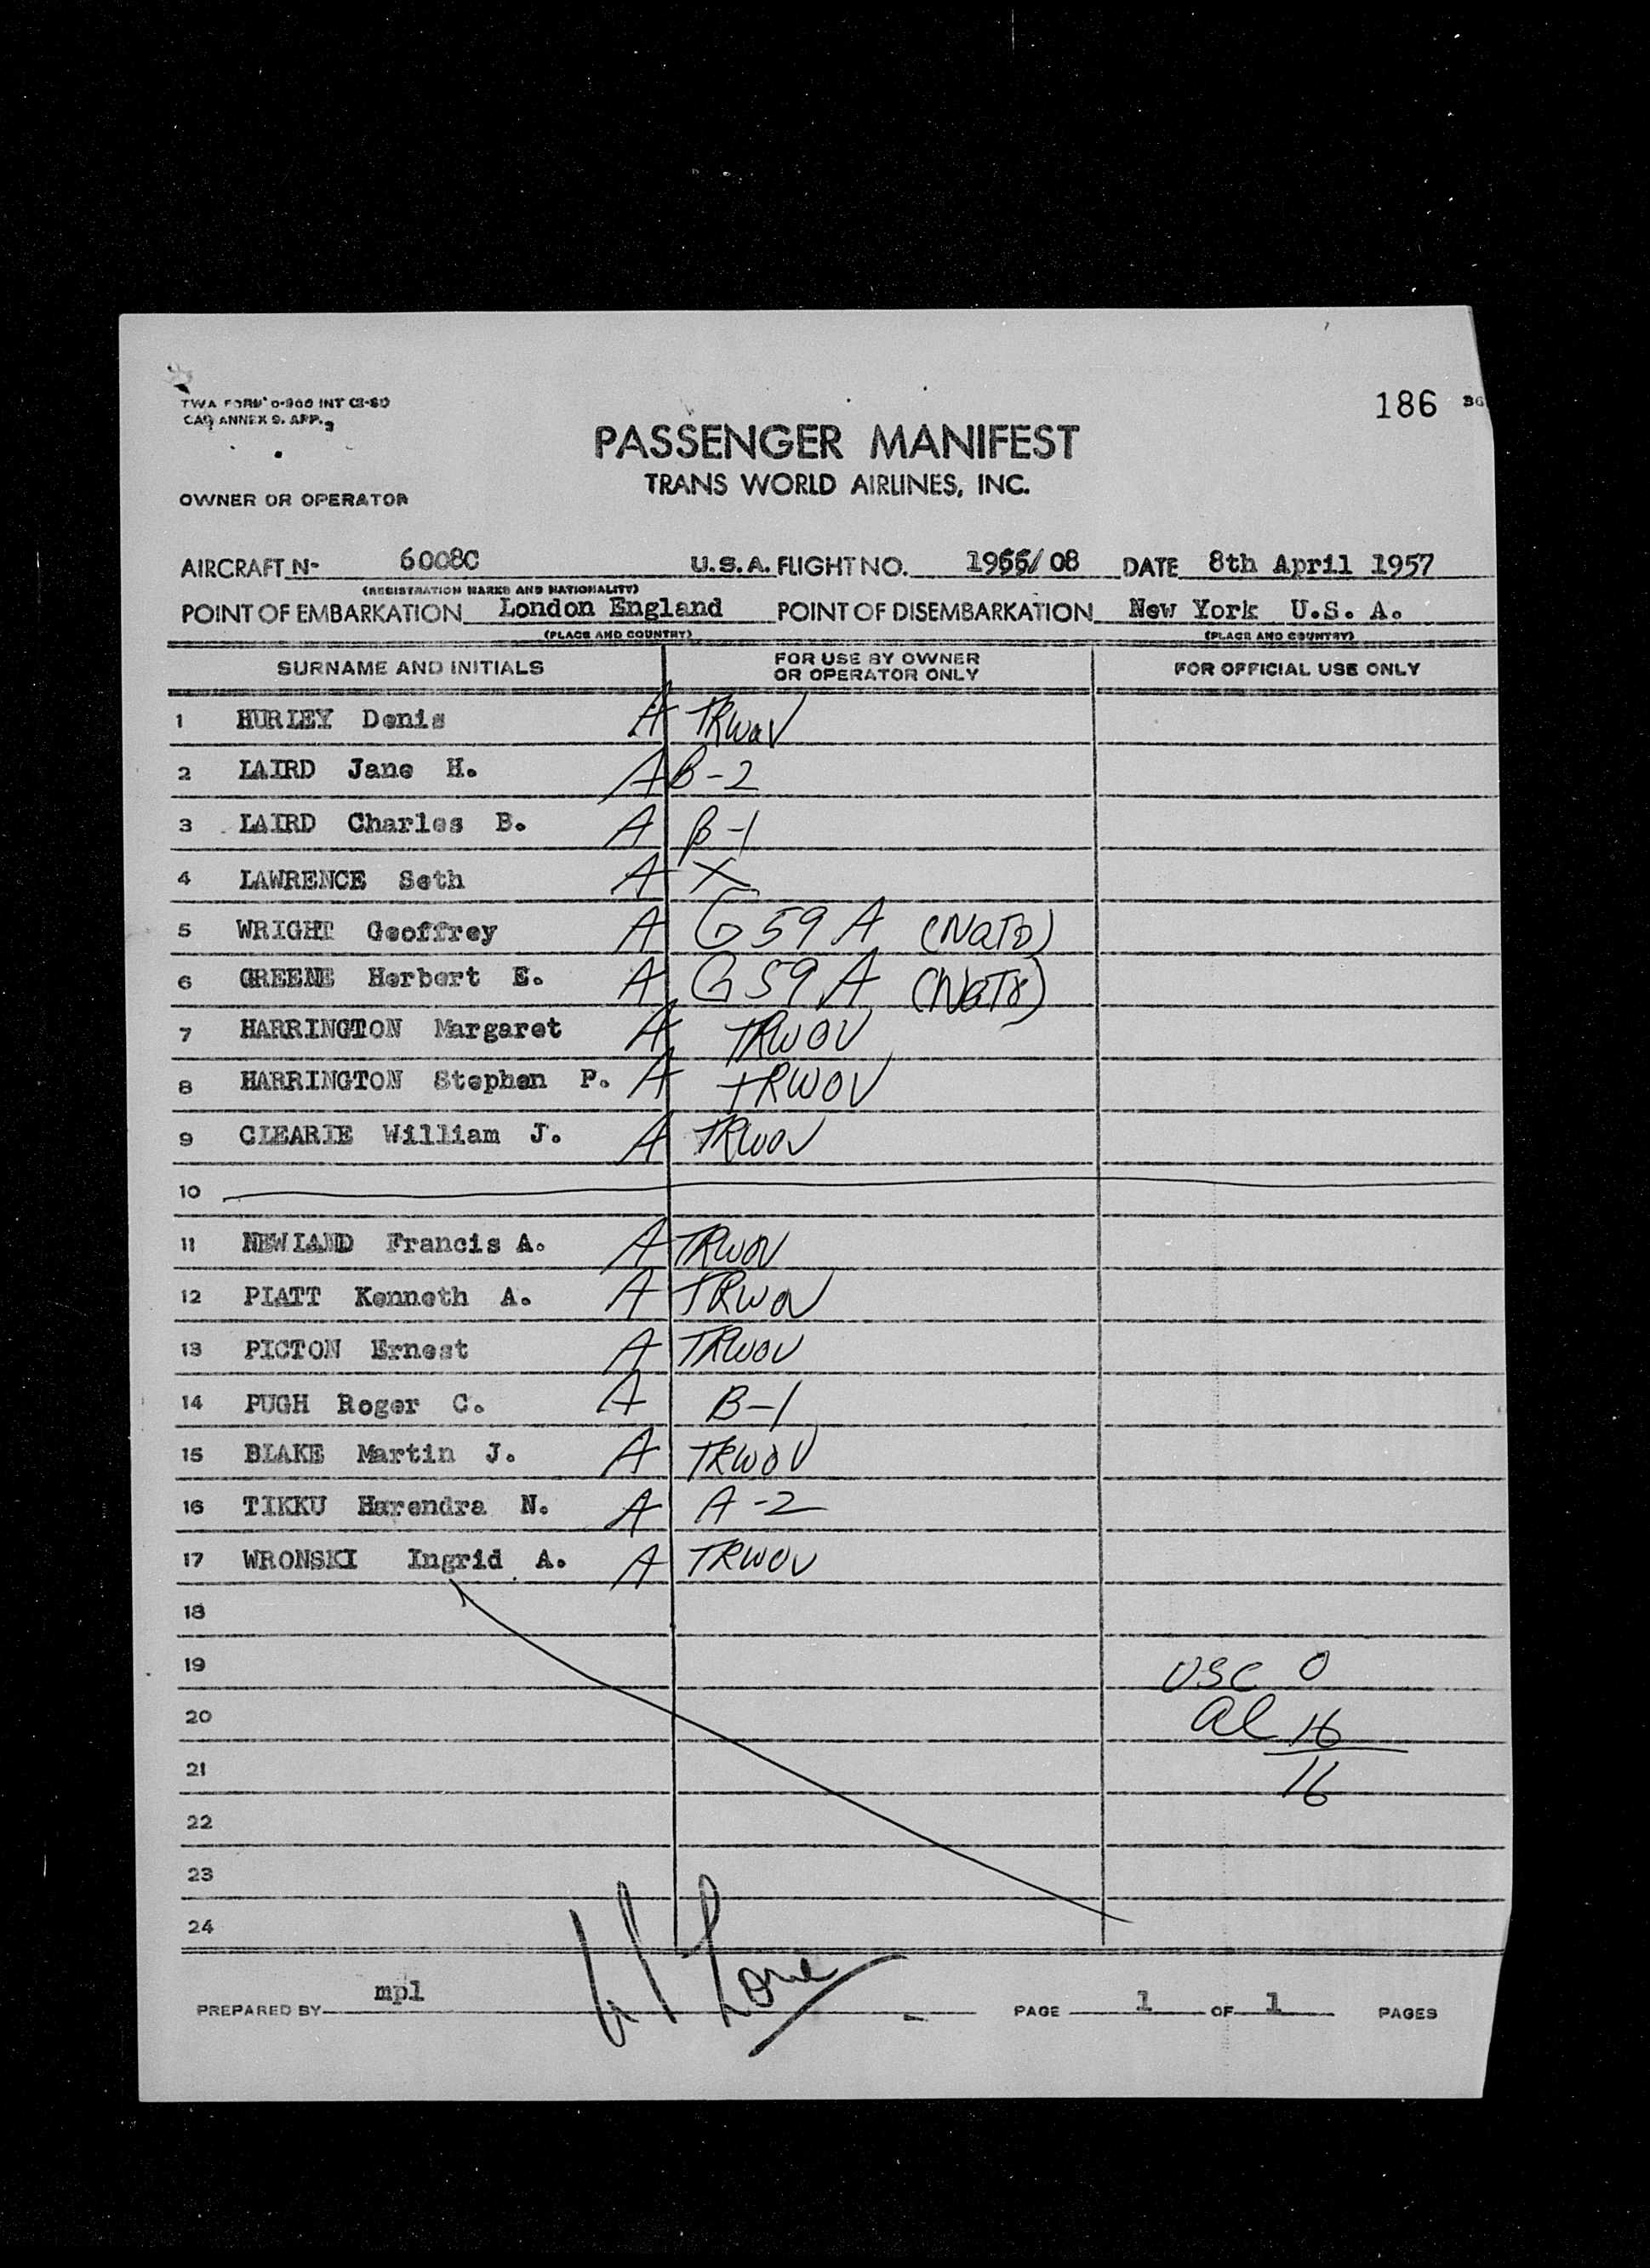 186
TWA FORM 0-900 INT
CAO ANNEX 9. APP. 3
PASSENGER MANIFEST
TRANS WORLD AIRLINES, INC.
OWNER OR OPERATOR
AIRCRAFT N- 6008C U.S.A. FLIGHT NO. /08 DATE 8th April 1957
(REGISTRATION MARKS AND NATIONALITY)
POINT OF EMBARKATION London England POINT OF DISEMBARKATION New York U.S.A.
(PLACE AND COUNTRY) (PLACE AND COUNTRY)
SURNAME AND INITIALS FOR USE BY OWNER OR OPERATOR ONLY FOR OFFICIAL USE ONLY
1 HURLEY Denis A TRWOV
2 LAIRD Jane H. A B-2
3 LAIRD Charles B. A B-1
4 LAWRENCE Seth A X
5 WRIGHT Geoffrey A G 59 A (NATO)
6 GREENE Herbert E. A G 59 A (NATO)
7 HARRINGTON Margaret A TRWOV
8 HARRINGTON Stephen P. A TRWOV
9 CLEARIE William J. A TRWOV
10
11 NEWLAND Francis A. A TRWOV
12 PIATT Kenneth A. A TRWOV
13 PICTON Ernest A TRWOV
14 PUGH Roger C. A B-1
15 BLAKE Martin J. A TRWOV
16 TIKKU Harendra N. A A-2
17 WRONSKI Ingrid A. A TRWOV
18
19 USC 0
20 al 16
21 16
22
23
24
PREPARED BY mpl PAGE 1 OF 1 PAGES